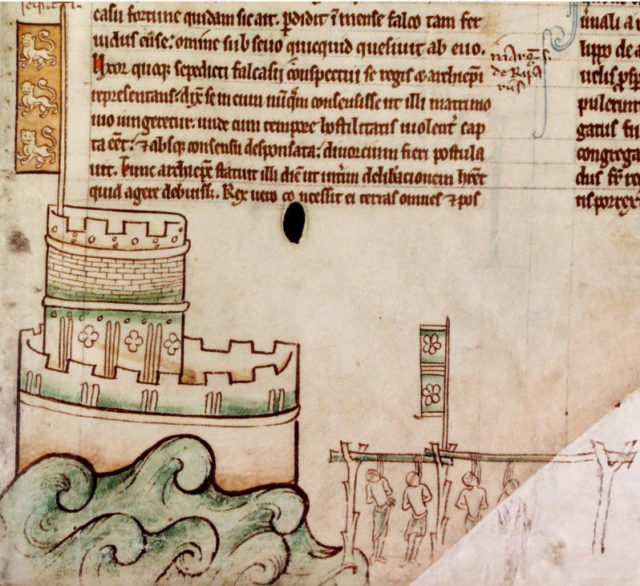 casu fortune quidam sic ait. pdidit i mense falco tam fer
uidus ense: omine sub seuo quicquid quesiuit ab euo.
Uxor quoq; sepedicti falcasii cspectui se regis & archiepi
representans: dix se in eum nuqm consensisse ut illi matrimo
nio iungeretur. unde cum tempore hostilitatis uiolent cap
ta eet: & absq; consensu desponsata: diuorcium fieri postula
uit. Tunc archiepc statuit illi die ut intim delibacionem heret
quid agere debuiss. Rex uero concessit ei terras omnes & pos
marg
de Ripa
riis
lippo de a
gatus fu
congrega